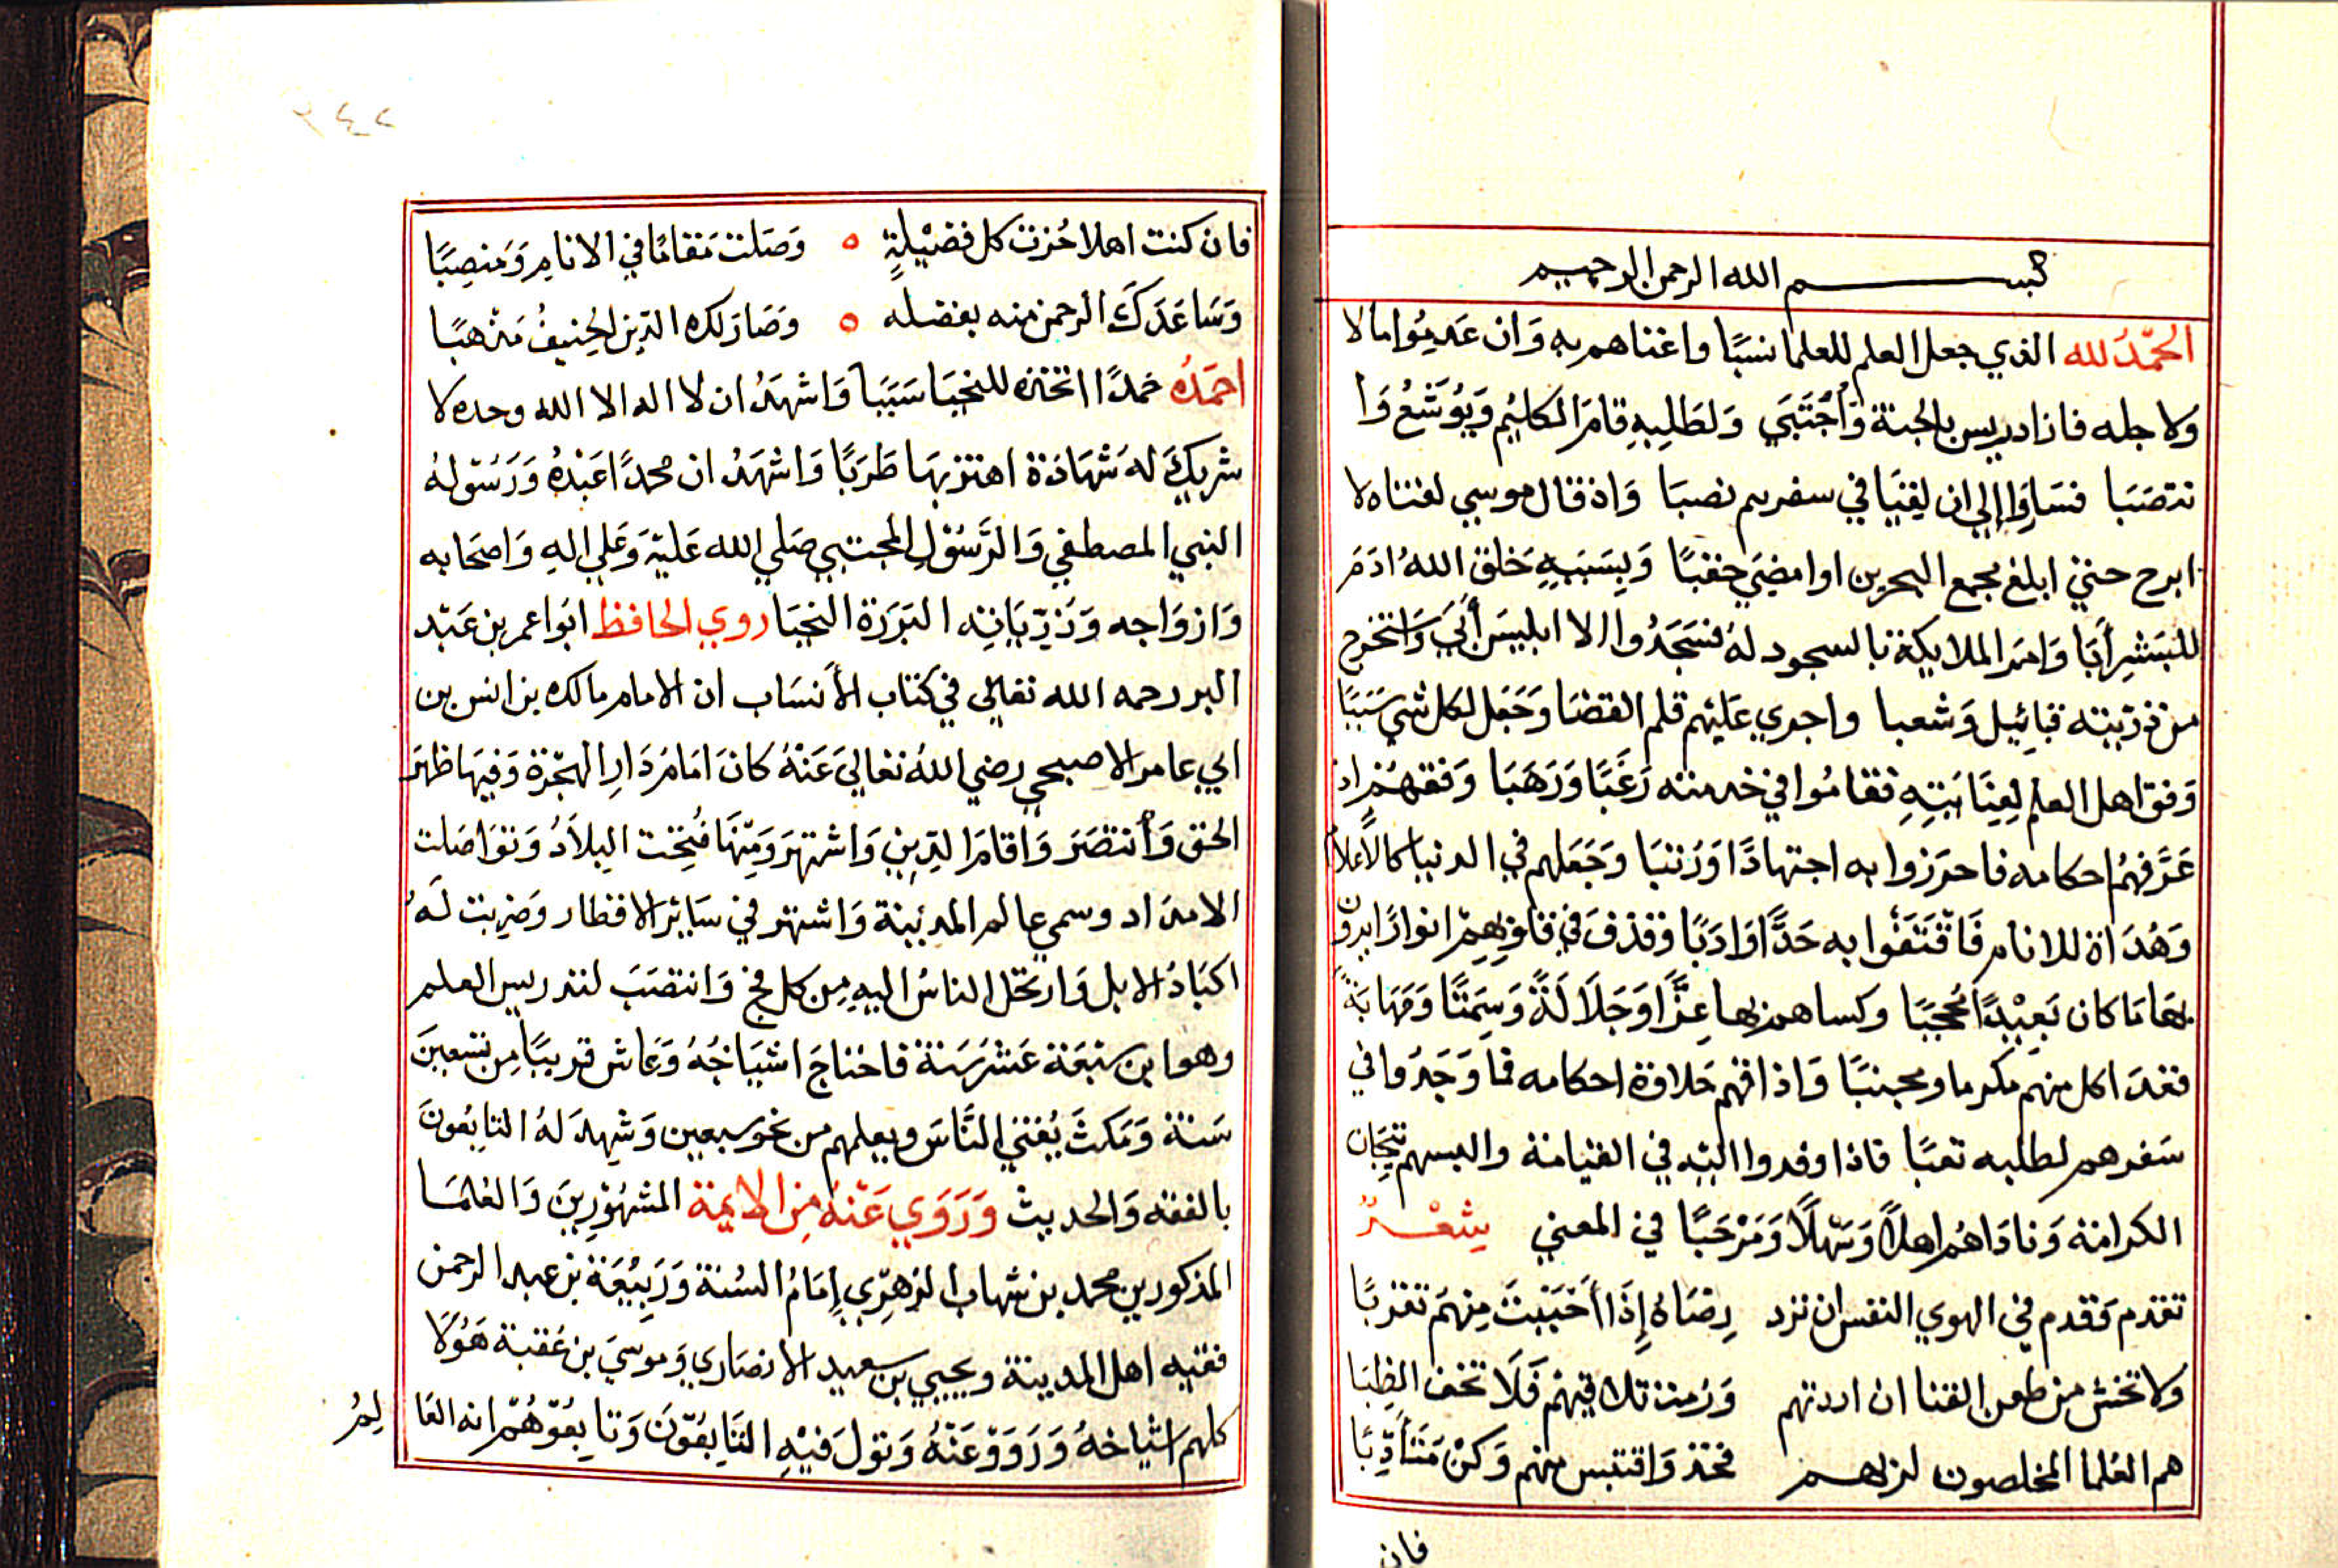 بسم الله الرحمن الرحيم
الحمد لله الذي جعل العلم للعلما نسبًا واغناهم به وَان عدمُوا مالا
ولاجله فاز ادريس بالجنة وَاُجْتَبَي وَلطَلِبِهِ قامَ الكليْم وَيُوشَعُ وَا
نتصَبَا فسَارَا إلي ان لقيَا في سفرهم نصبَا وَاذ قال موسي لفتاه لا
ابرح حتي ابلغ مجمع البحرين او امضيَ حقبًا وَبِسَبَبِهِ خلق اللهُ ادَمَ
للبَشرِ أبًا وَامَر الملايكة بالسجود لهُ فسَجَدُوا الا ابليسَ أَبَي وَاستخرج
من ذرّيته قبائِيل وَشعبا واجري عَليْهم قلم القضَا وَجَعَل لكل شي سَببًا
وَفق اهل العلم لِعِنَايَتِهِ فقامُوا في خدمته رَغَبًا وَرَهَبَا وَفقههُمْ اذ
عَرَّفهُم احكامه فاحرَزوا به اجتهادًا وَرُتبَا وَجَعَلهم في الدنيا كالاعلام
وَهُدَاة للانام فَاقْتَفَوا به حَدًّا وَادَبًا وَقذفَ في قلوبِهِمْ انوارًا يرَوْن
بهَا مَا كان بَعِيْدًا مُحجبًا وكساهم بها عِزًّا وَجَلَالَةً وَسِمَتًا وَمَهَابَةً
فغدَا كل منهم مكرما ومجتبًا وَاذاقهم حَلاوَة احكامه فما وَجَدُوا في
سَفرهم لطلبه تعبًا فاذا وفدوا اليْه في القيَامة والبسهم تيْجَان
الكرامة وَنادَاهُم اهلًا وَسَهلًا وَمَرْحَبًا في المعني شعْرٌ
تقدم وَقدم في الهوي النفس ان ترد رِضَاهُ إذَا أحْبَبْتَ مِنهمْ تقربًا
ولا تخش من طعن القنا ان اردتهم وَرُمت تلاقيهْم فَلَا تخف الظبَا
هم العُلما المخلصون لربهم فخذ وَاقتبس منهم وَكنْ مَتأَدِّبًا
فان
فان كنت اهلا حُزت كل فضيْلةٍ ٥ وَصَلت مَقامًا في الانامِ وَمَنصِبًا
وَسَاعَدَكَ الرحمن منه بفضله ٥ وَصَارَ لك الدّين الحنيفُ مَذهبًا
احمَدُه حَمدًا اتخذه للنجبَا سَبَبَا وَاشهَدُ ان لا اله الا الله وحده لا
شريكَ لهُ شهَادَة اهتز بهَا طَرَبًا وَاشهَدُ ان محمدًا عَبْدهُ وَرَسُولهُ
النبي المصطفي وَالرَّسُوْلِ المجتبي صَلي الله عَليْه وَعَلي الهِ وَاصحَابه
وَازوَاجه وَذرّيَاتِه البَرَرَة النجبَا روي الحافظ ابوا عمر بن عَبْد
البر رحمه الله تعَالي في كتاب الأنسَاب ان الامام مالك بن انس بن
ابي عامر الاصبحي رضي اللهُ تعَالي عَنْهُ كانَ امَامُ دَارِ الهجْرَة وَفيهَا ظهَر
الحق وَأنتصَرَ وَاقامَ الدّينِ وَاشتهرَ وَمِنهَا فُتِحَت البلَادُ وَتوَاصَلت
الامدَاد وسمي عالم المدينة وَاشتهر في سَايْر الاقطار وَضربت لَهُ
اكبَادُ الابل وَارتحَل الناسُ اليهِ مِن كل فج وَانتصَبَ لتدريس العلم
وهوابن سَبعَة عَشر سَنة فاحتاجَ اشيَاخُهُ وَعَاش قريبًا مِن تسعِينَ
سَنة وَمَكثَ يُفتي النَّاسَ ويعلمهم من نحو سبعين وَشهِدَ لهُ التابِعُونَ
بالفقه وَالحديث وَرَوَي عَنْهُ مِن الايمة المشهُوْرِينَ وَالعُلمَا
المذكورين محمد بن شهاب الزهْري إمَامُ السُنة وَرَبيْعَة بن عبد الرحمن
فقيه اهل المدينة ويحيي بن سعيد الانصَاري وَموسيَ بن عُقبة هَوُلَا
كلهم اشياخهُ وَرَوَوْ عَنْهُ وَتولَ فيْهِ التَّابعُوْنَ وَتابِعُوْهُمْ انه العَا
لِمُ